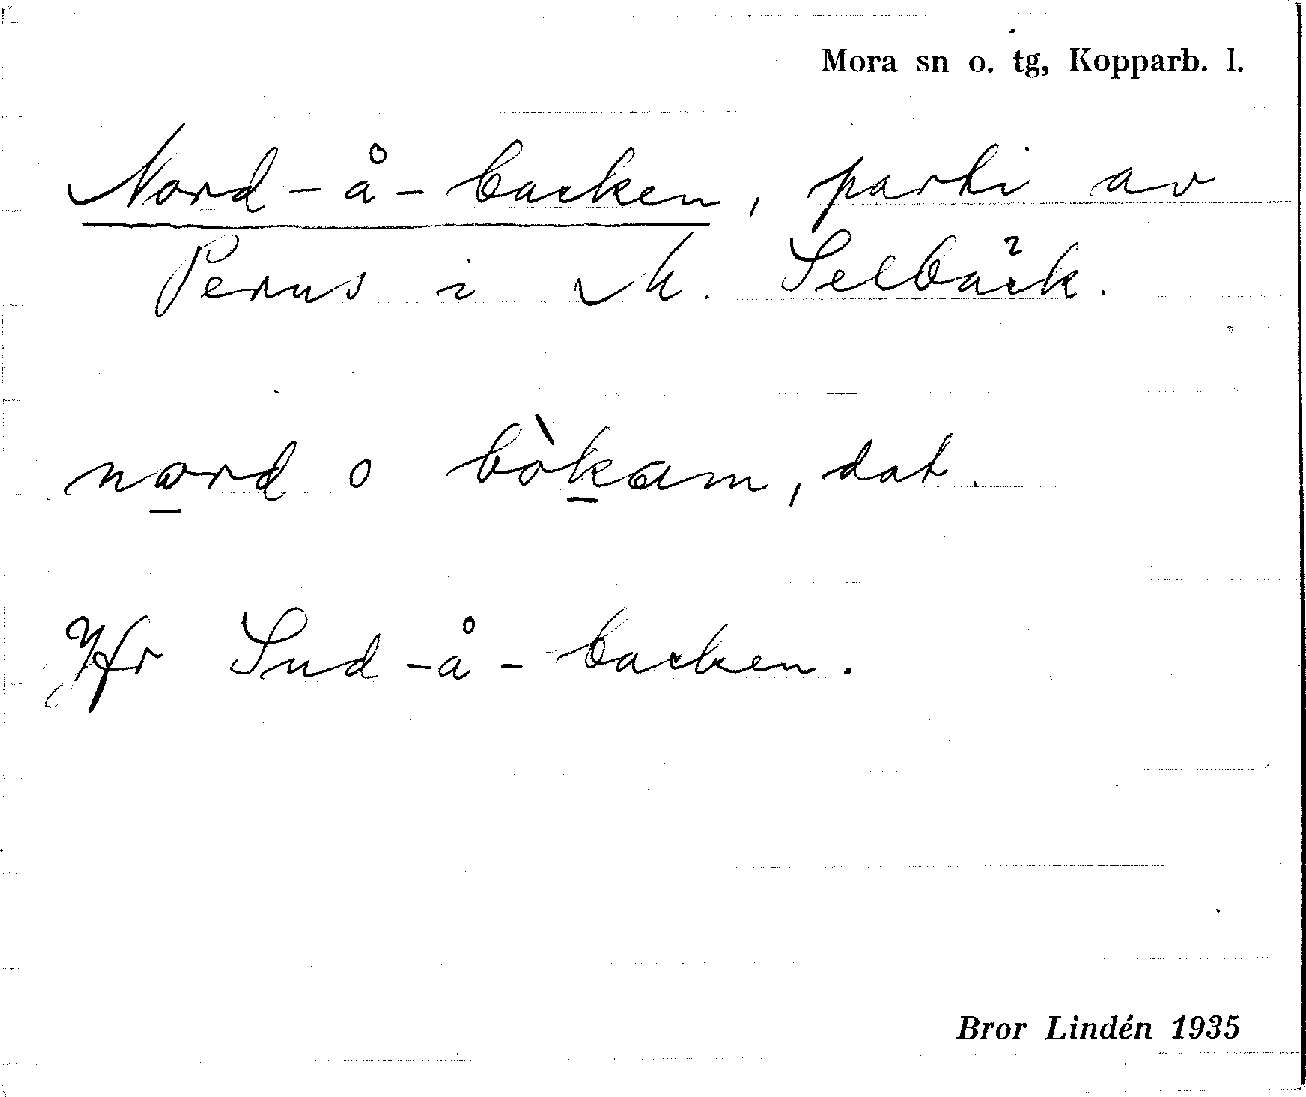 Mora sn o. tg, Kopparb. l.
Nord-å-backen, parti av
Perus i M. Selbäck.
nord o bòkam, dat.
Jfr Sud-å-backen.
Bror Lindén 1935